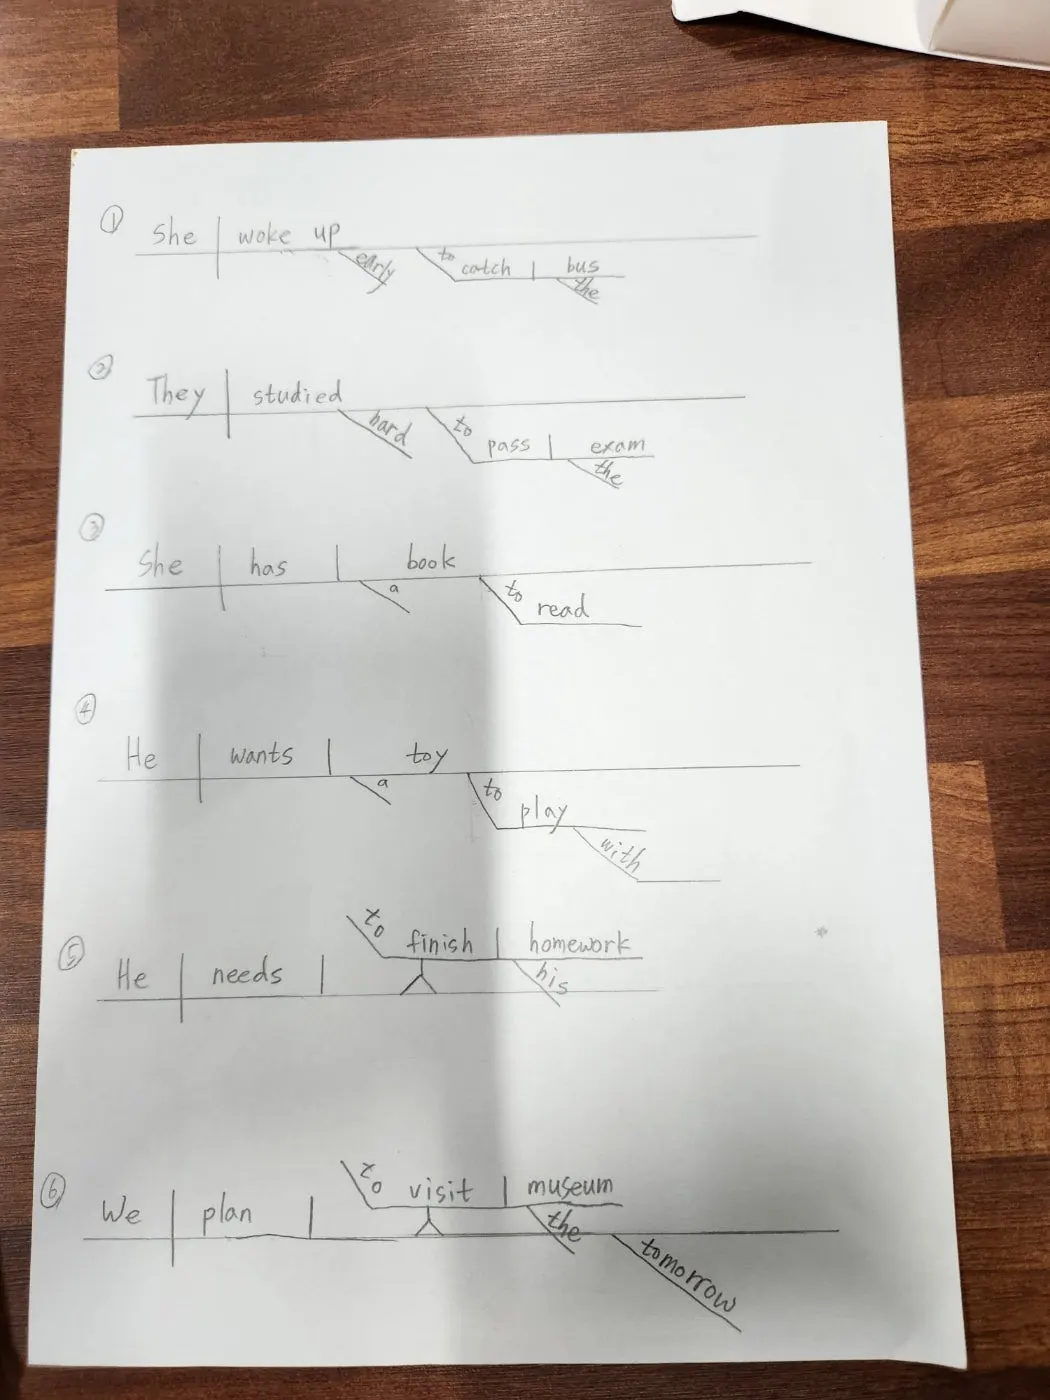 ① She woke up early to catch bus the
② They studied hard to pass exam the
③ She has a book to read
④ He wants a toy to play with
⑤ He needs to finish homework his
⑥ We plan to visit museum the tomorrow